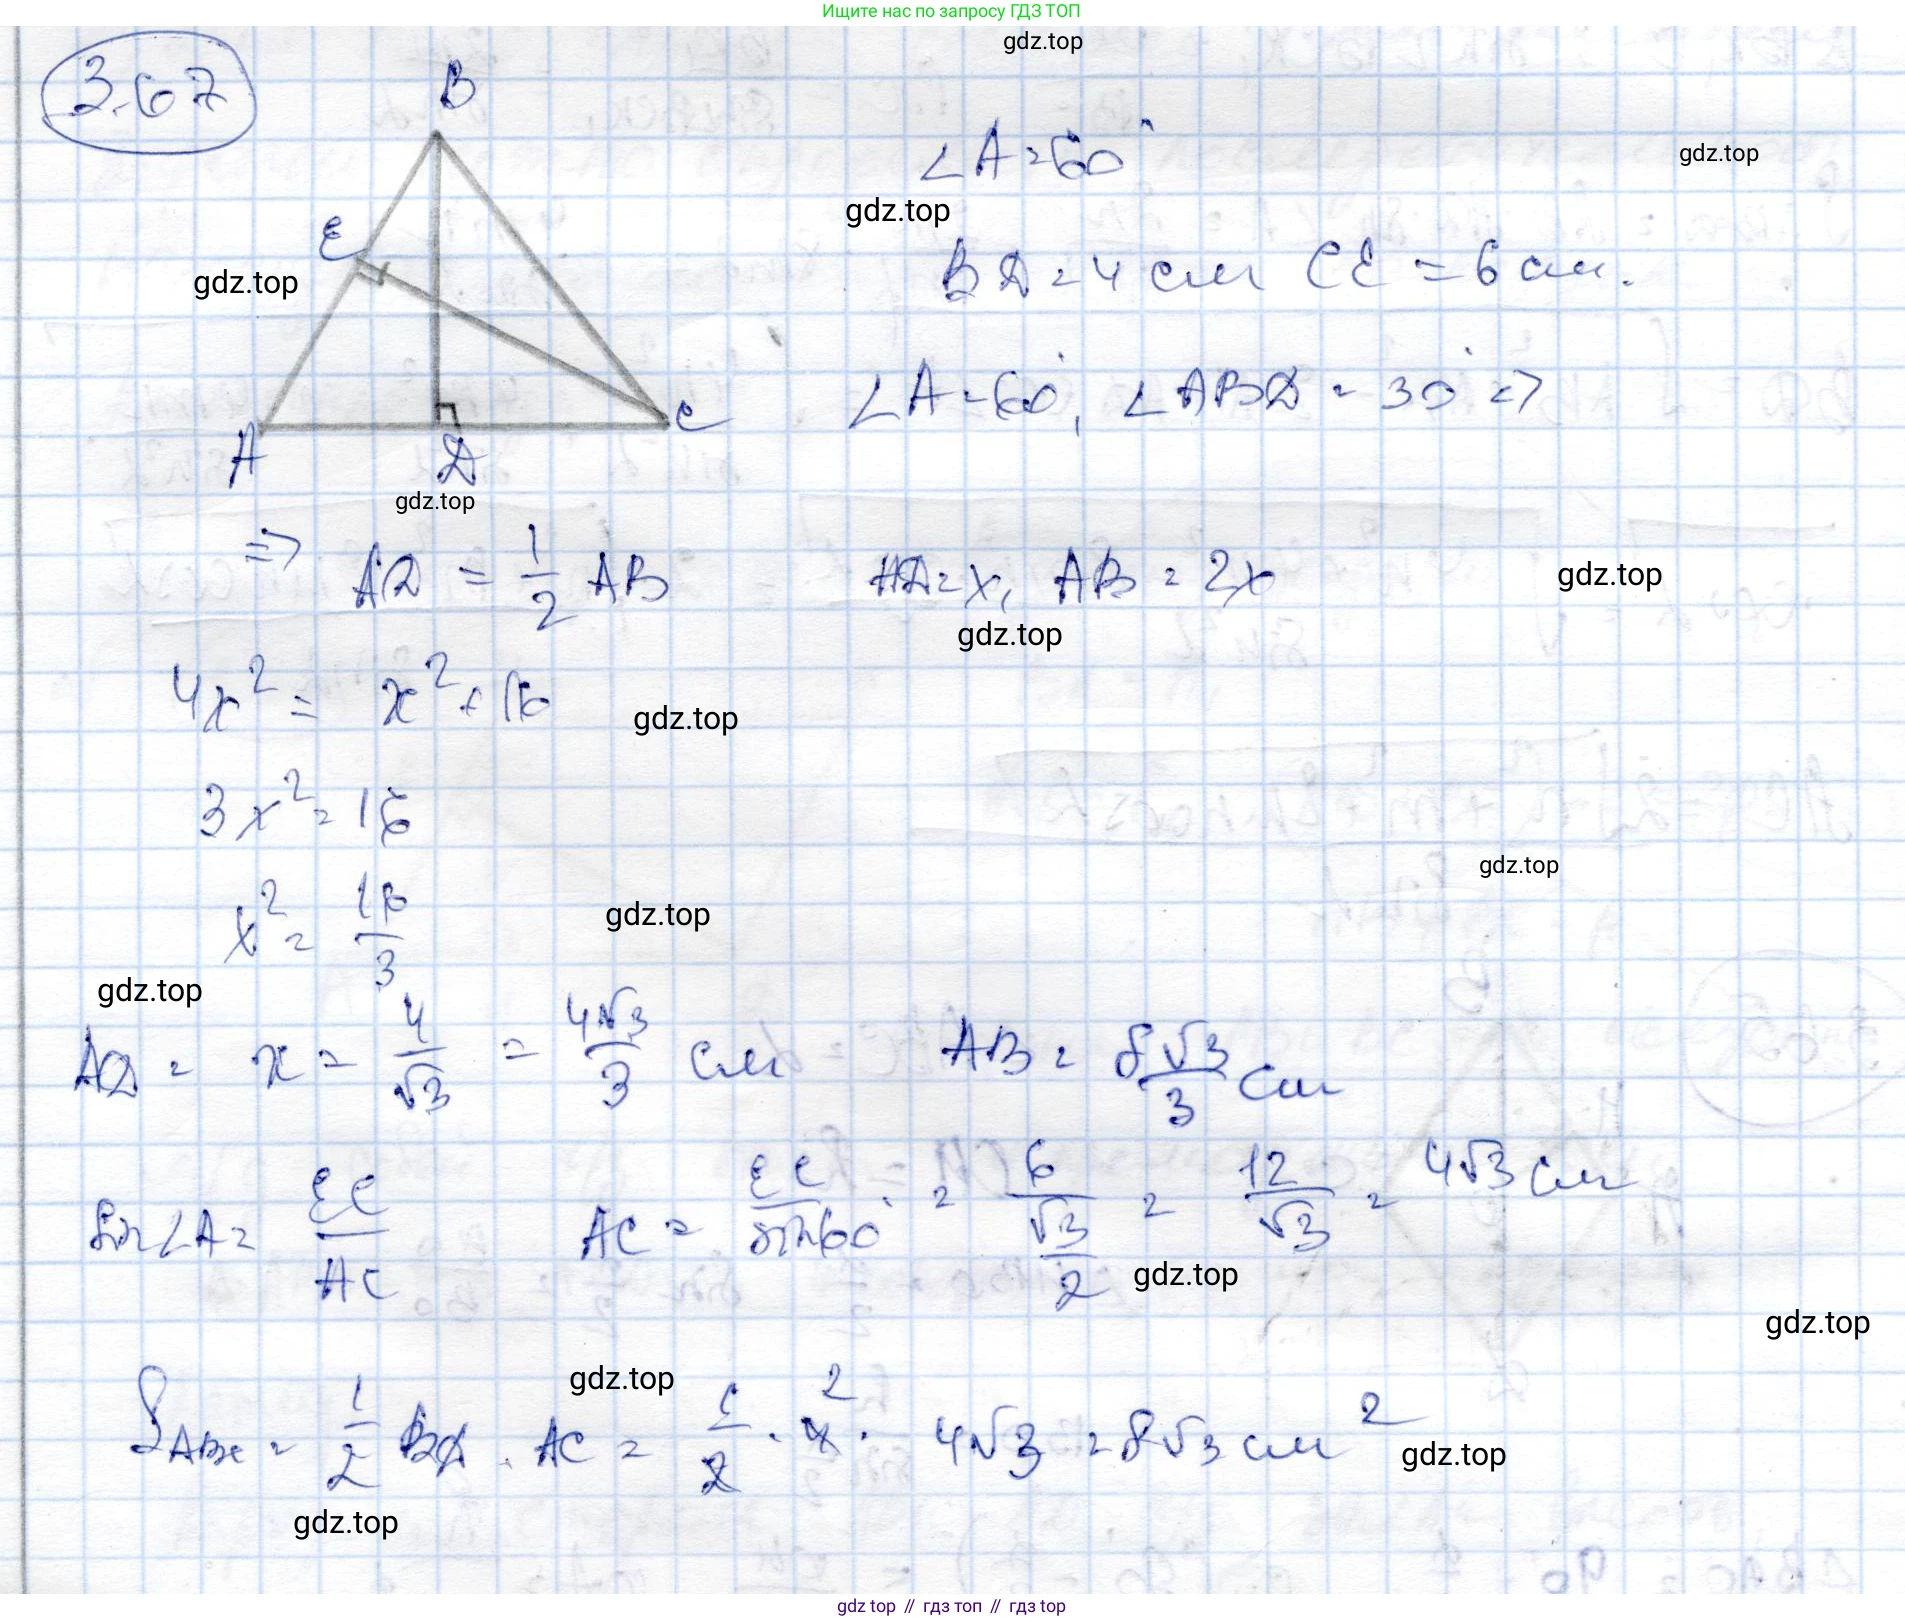 Ищите нас по запросу ГДЗ ТОП
gdz.top
3.67
B
∠A = 60°
gdz.top
gdz.top
E
BD = 4 см CE = 6 см.
gdz.top
∠A = 60°, ∠ABD = 30° =>
A
D
C
gdz.top
=> AD = 1/2 AB
AD = x, AB = 2x
gdz.top
gdz.top
4x² = x² + 16
gdz.top
3x² = 16
gdz.top
x² = 16/3
gdz.top
gdz.top
AD = x = 4/√3 = 4√3/3 см AB = 8√3/3 см
sin∠A = EC/AC AC = EC/sin60° = 6/(√3/2) = 12/√3 = 4√3 см
gdz.top
gdz.top
gdz.top
S ABC = 1/2 BD · AC = 1/2 · 4 2 · 4√3 = 8√3 см²
gdz.top
gdz.top
gdz top // гдз топ // гдз top